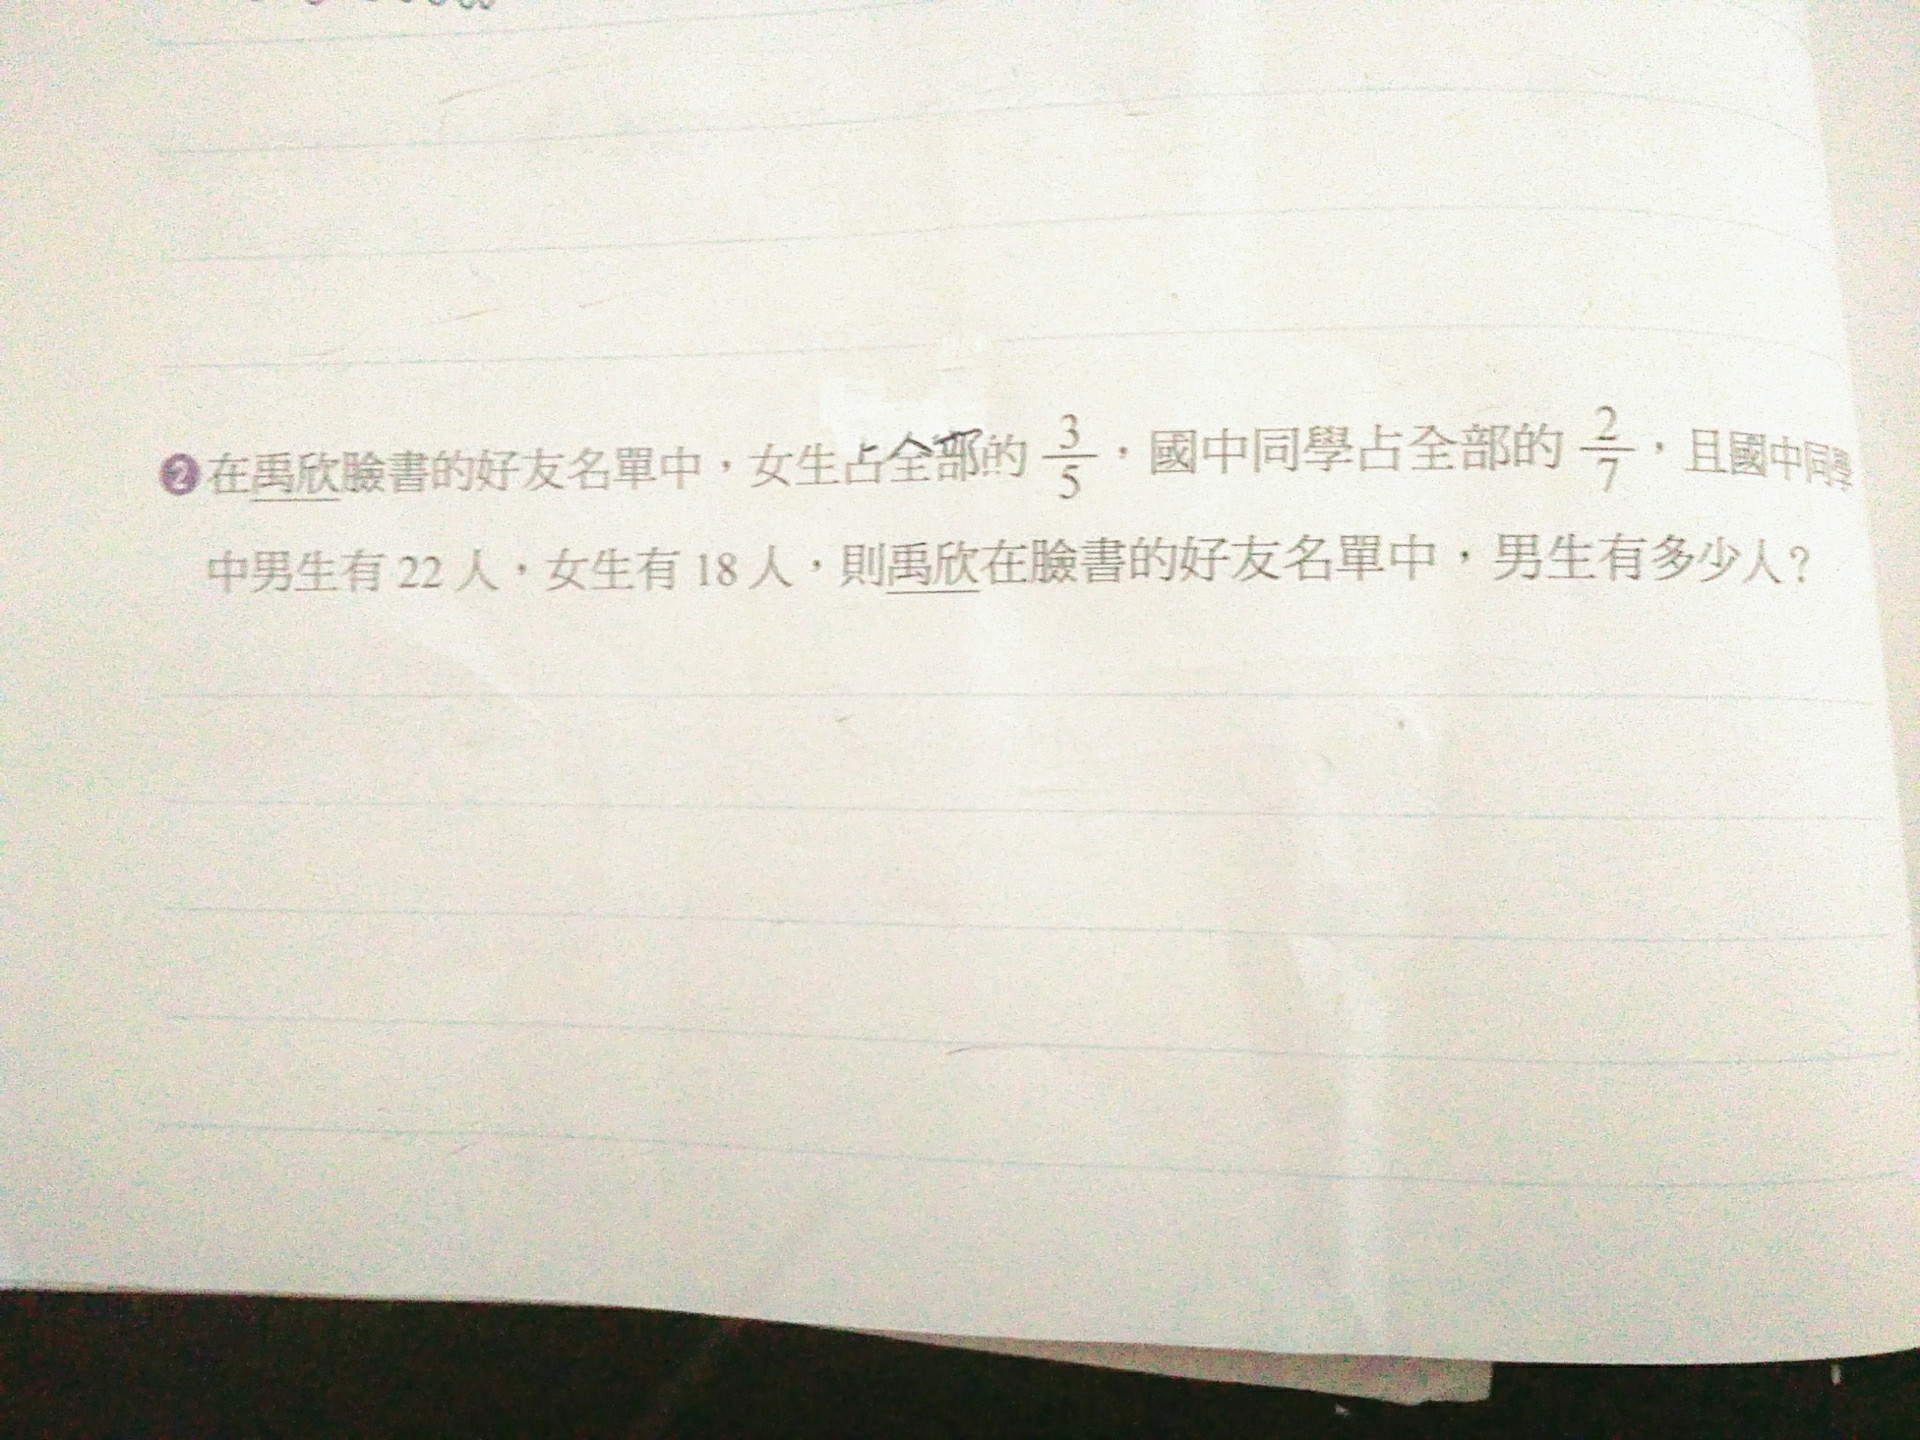 ❷在禹欣臉書的好友名單中，女生占全部的 3/5，國中同學占全部的 2/7，且國中同學
中男生有 22 人，女生有 18 人，則禹欣在臉書的好友名單中，男生有多少人？